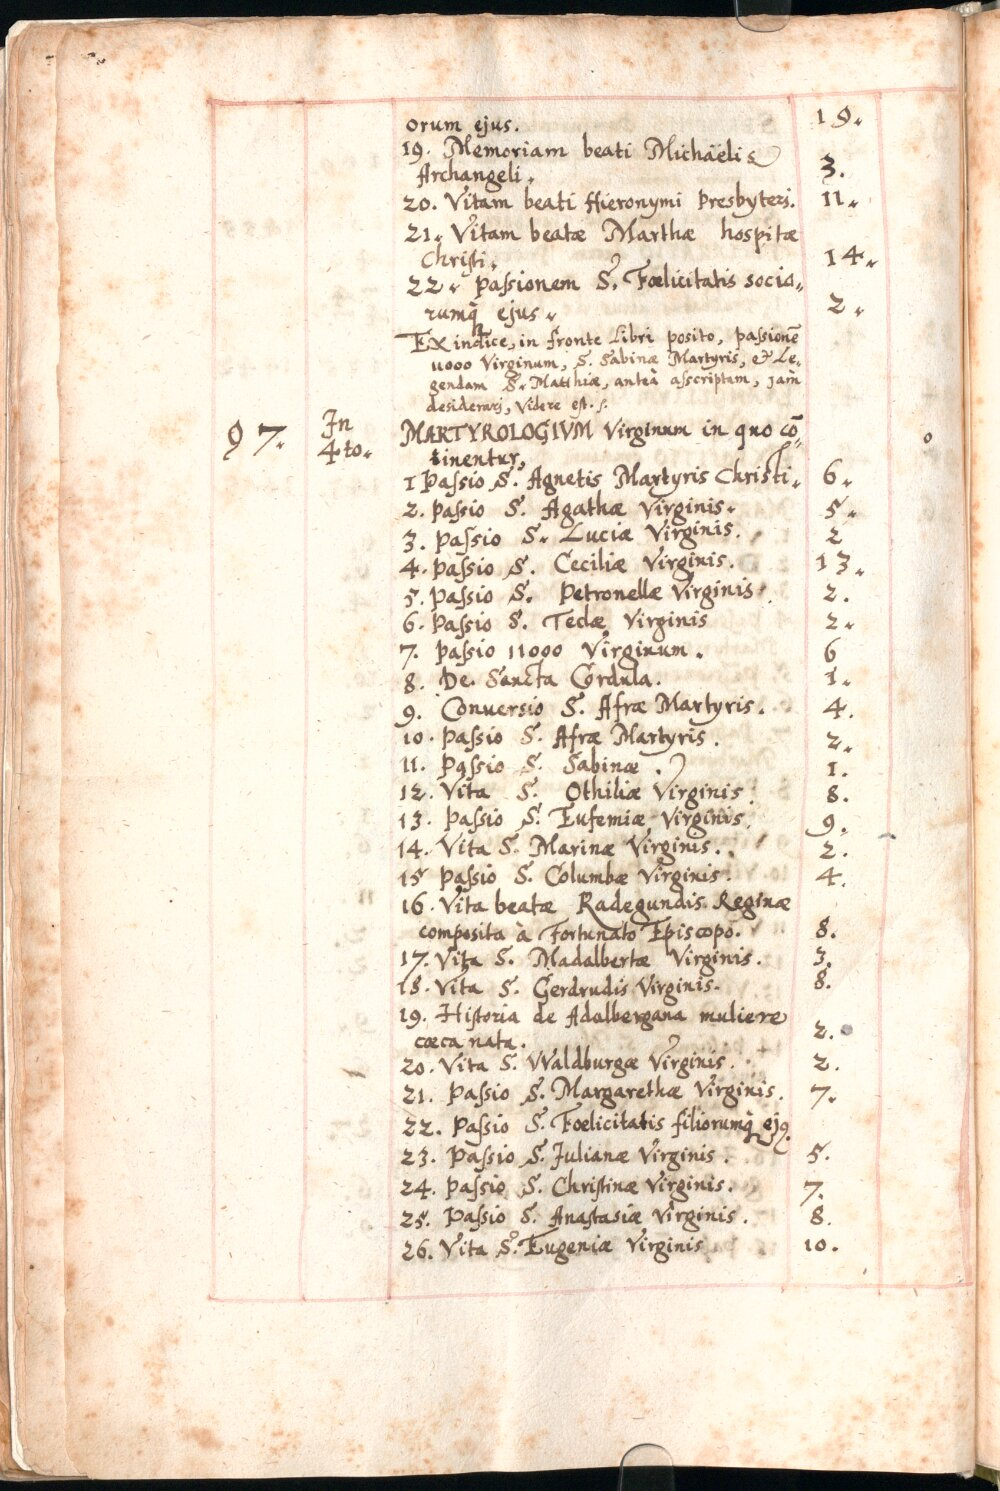 orum ejus. 19.
19. Memoriam beati Michäelis
Archangeli. 3.
20. Vitam beati Hieronymi Presbyteri. 11.
21. Vitam beatæ Marthæ hospitæ
Christi. 14.
22. passionem S. Fœlicitatis socio„
rumq̃ ejus. 2.
Ex indice, in fronte Libri posito, passionē
11000 Virginum, S. Sabinæ Martyris, & Le„
gendam S. Matthiæ, anteà asscriptam, jam̃
desiderarj, videre est.
97. In 4to. MARTYROLOGIVM Virginum in quo cō„
tinentur,
1 Passio S. Agnetis Martyris Christi. 6.
2. passio S. Agathæ Virginis. 5.
3. passio S. Luciæ Virginis. 2
4. passio S. Ceciliæ Virginis. 13.
5. passio S. Petronellæ Virginis. 2.
6. passio S. Teclæ Virginis 2.
7. passio 11000 Virginum. 6
8. De Sancta Cordula. 1.
9. Conuersio S. Afræ Martyris. 4.
10. passio S. Afræ Martyris. 2.
11. Passio S. Sabinæ. 1.
12. Vita S. Othiliæ Virginis. 8.
13. passio S. Eufemiæ Virginis. 9.
14. Vita S. Marinæ Virginis. 2.
15 passio S. Columbæ Virginis. 4.
16. Vita beatæ Radegundis Reginæ
composita à Fortunato Episcopo. 8.
17. Vita S. Madalbertæ Virginis. 3.
18. Vita S. Gerdrudis Virginis. 8.
19. Historia de Adalbergana muliere
cœca nata. 2.
20. Vita S. Waldburgæ Virginis. 2.
21. passio S. Margarethæ Virginis. 7.
22. passio S. Fœlicitatis filiorumq̃ ejꝰ.
23. passio S. Julianæ Virginis. 5.
24. passio S. Christinæ Virginis. 7.
25. passio S. Anastasiæ Virginis. 8.
26. Vita S. Eugeniæ Virginis 10.